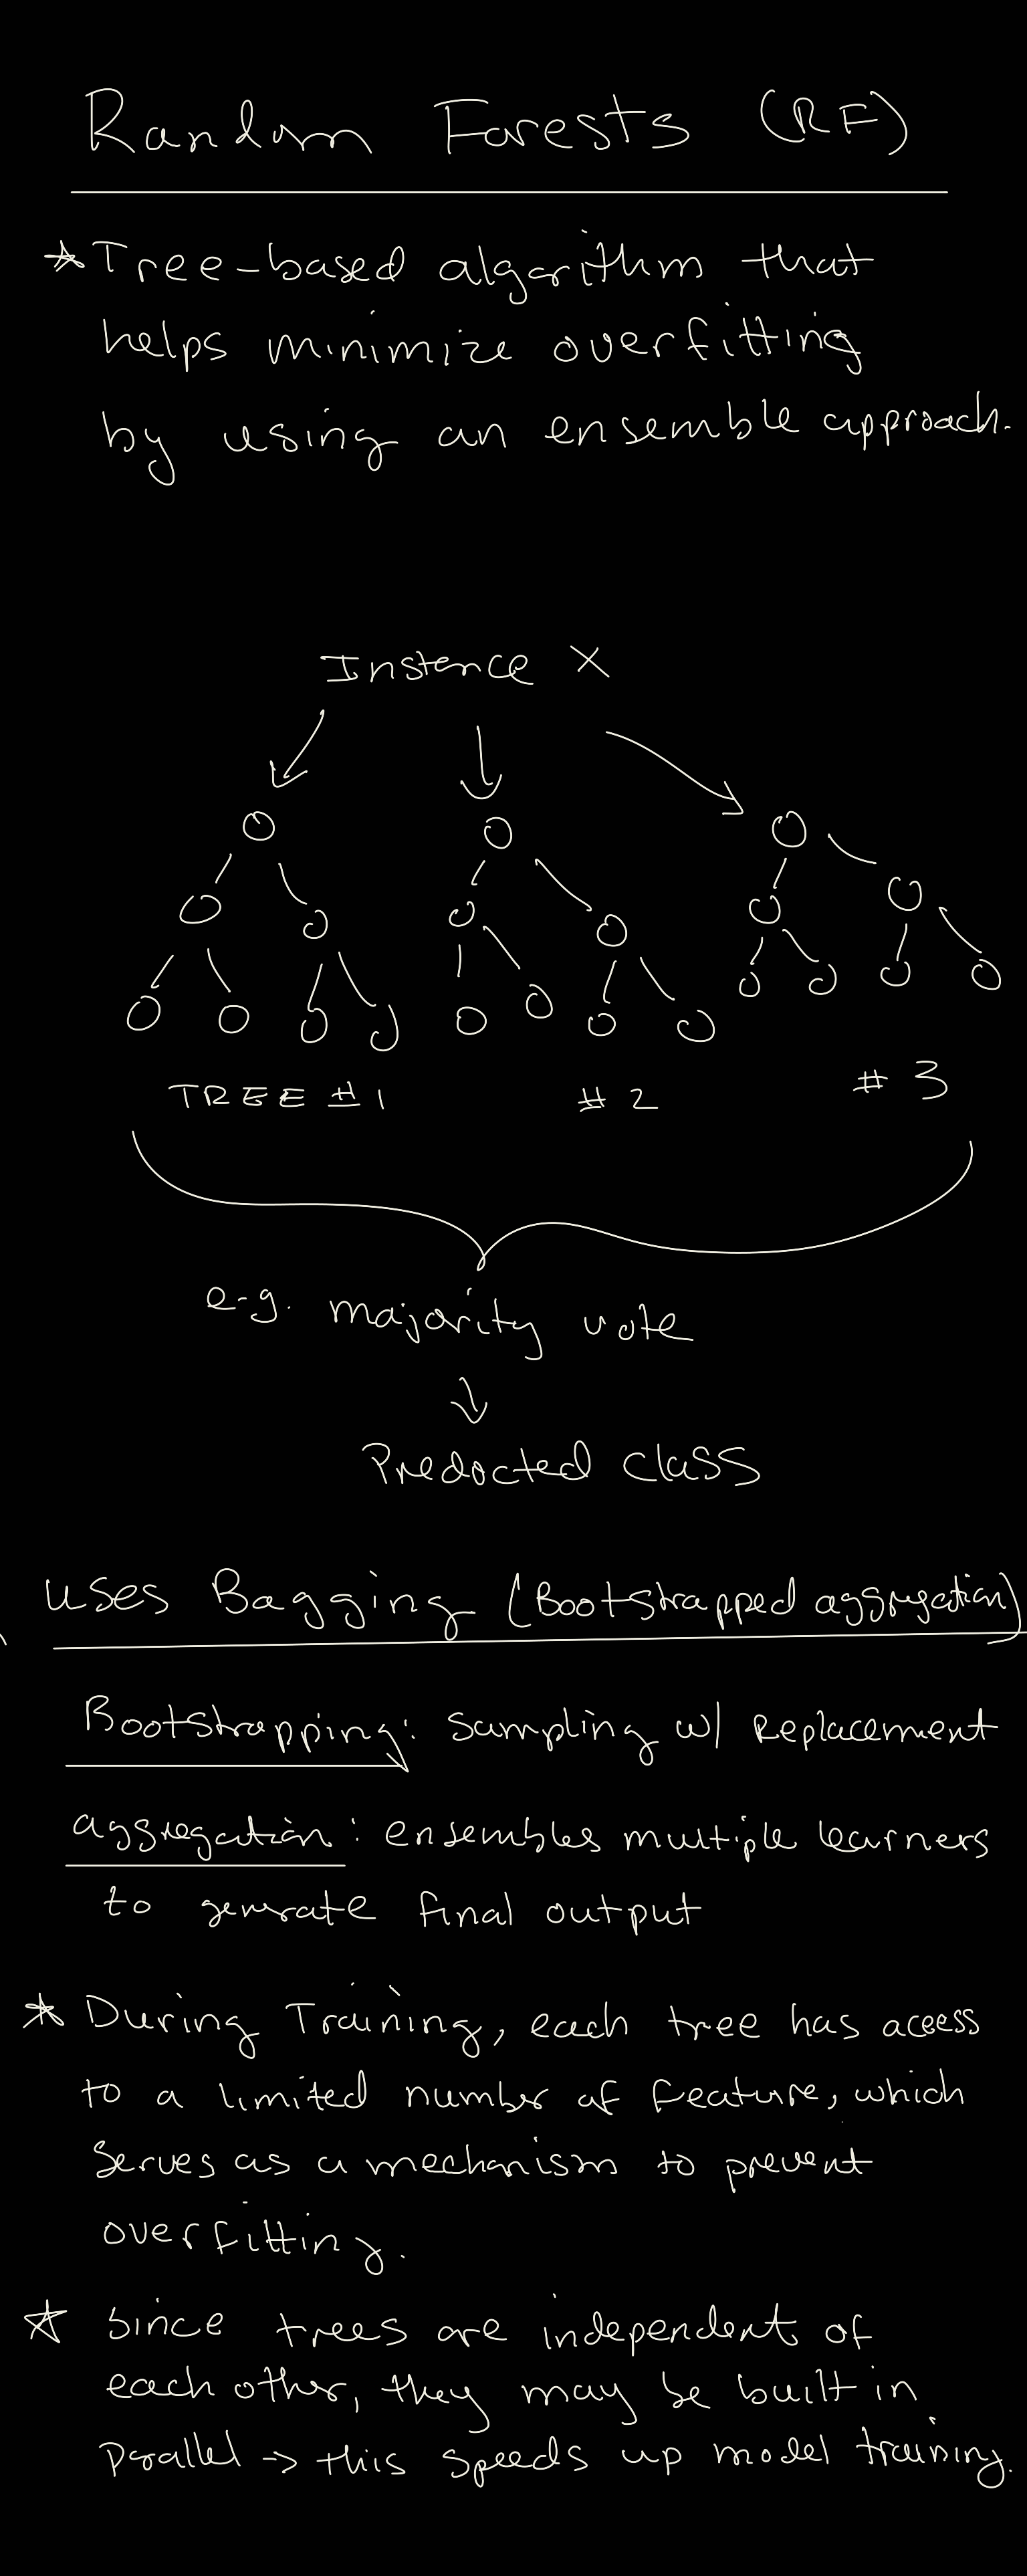 Random Forests (RF)
* Tree-based algorithm that
helps minimize overfitting
by using an ensemble approach.
Instance X
TREE #1 #2 #3
e.g. majority vote
↓
Predicted class
uses Bagging (Bootstrapped aggregation)
Bootstrapping: sampling w/ Replacement
aggregation: ensembles multiple learners
to generate final output
* During Training, each tree has access
to a limited number of feature, which
serves as a mechanism to prevent
overfitting.
* Since trees are independent of
each other, they may be built in
parallel → this speeds up model training.